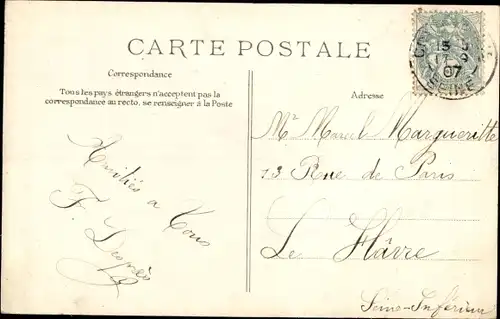 CARTE POSTALE
Correspondance
Tous les pays étrangers n'acceptent pas la
correspondance au recto, se renseigner à la Poste
Adresse
07
SEINE
Amitiés a tous
F. Després
Mr Marcel Margueritte
13 Rue de Paris
Le Hâvre
Seine-Inférieure